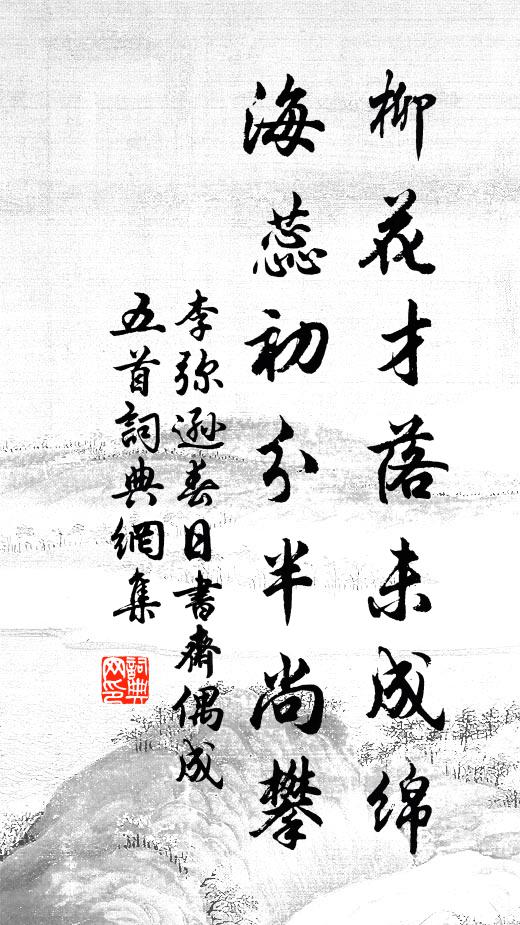 柳花才落未成绵
海蕊初分半尚攀
李弥逊春日书斋偶成
五首詞典網集
詞典
网印